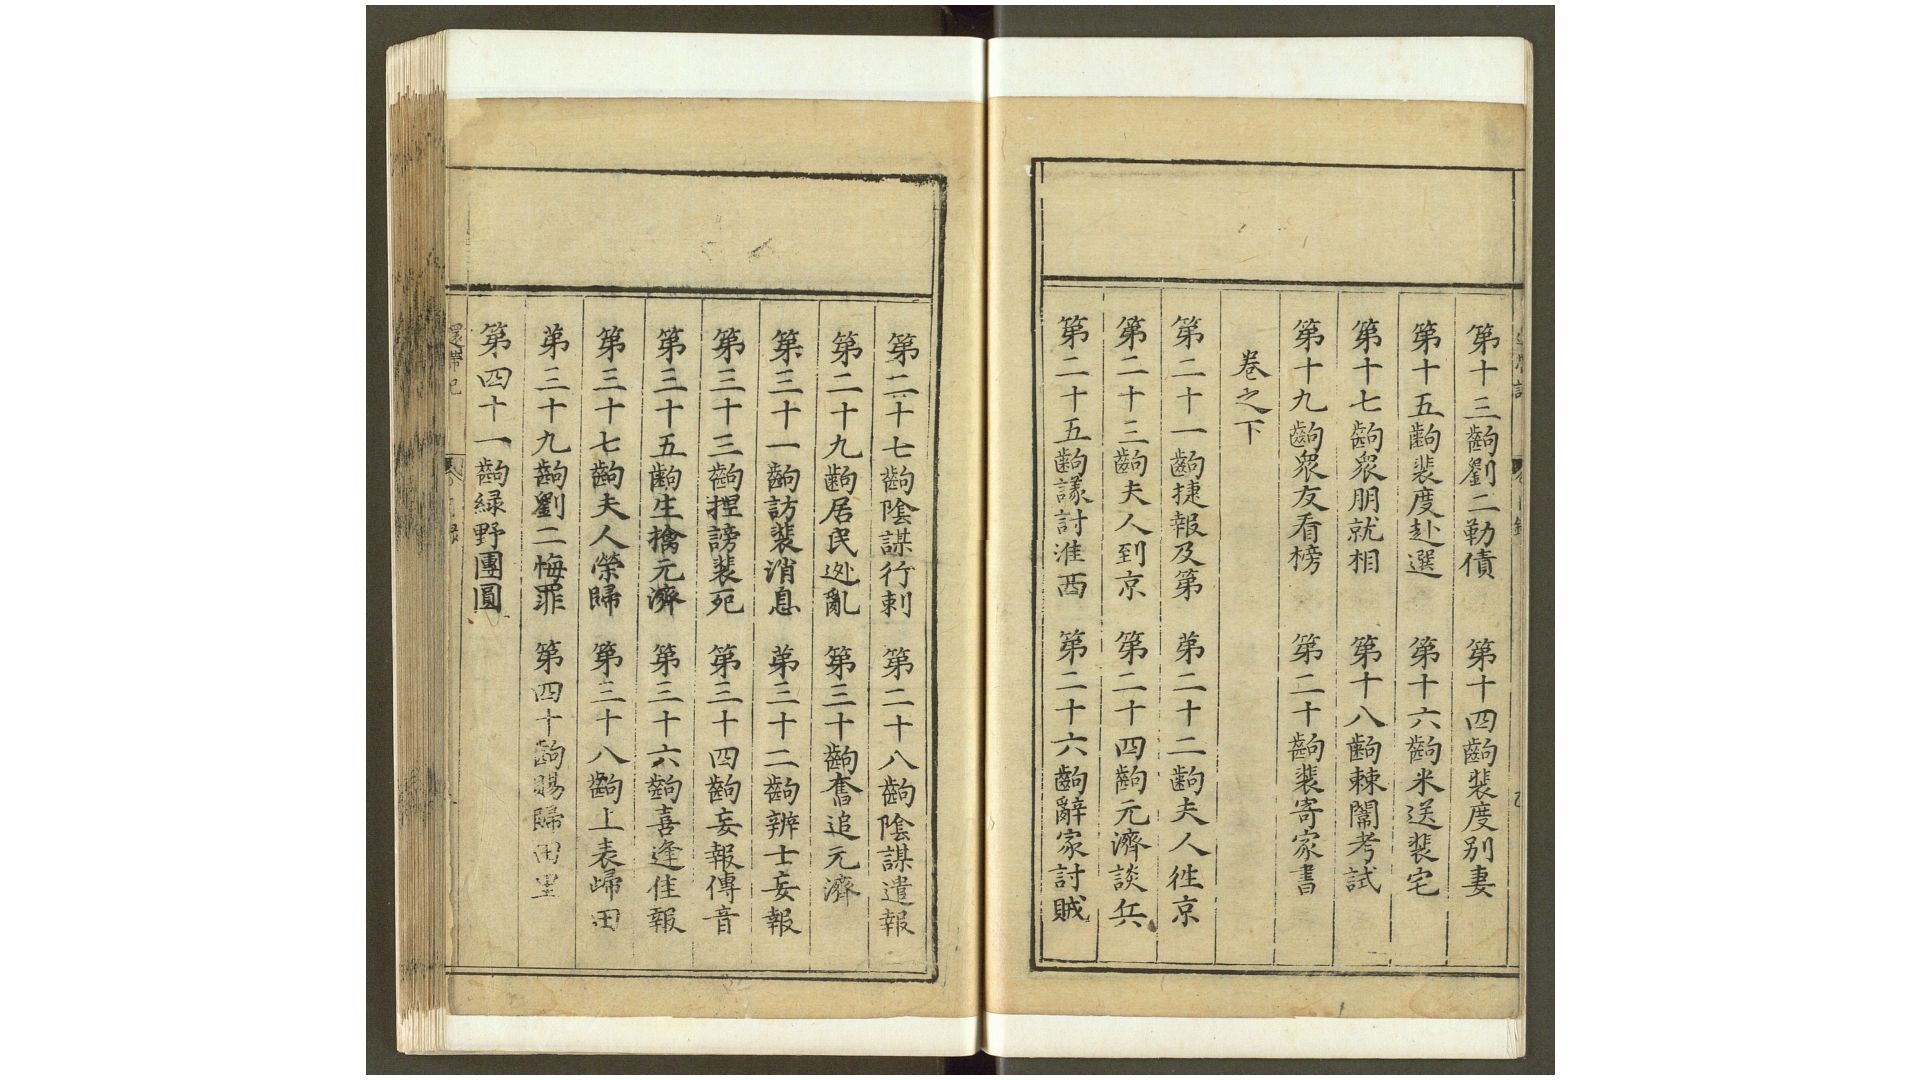 第十三齣劉二勒債　第十四齣裴度別妻
第十五齣裴度赴選　第十六齣米送裴宅
第十七齣眾朋就相　第十八齣棘闈考試
第十九齣眾友看榜　第二十齣裴寄家書
卷之下
第二十一齣捷報及第　第二十二齣夫人徃京
第二十三齣夫人到京　第二十四齣元濟談兵
第二十五齣議討淮西　第二十六齣辭家討賊
第二十七齣陰謀行刺　第二十八齣陰謀遣報
第二十九齣居民迯亂　第三十齣奮追元濟
第三十一齣訪裴消息　第三十二齣辨士妄報
第三十三齣捏謗裴死　第三十四齣妄報傳音
第三十五齣生擒元濟　第三十六齣喜逢佳報
第三十七齣夫人榮歸　第三十八齣上表歸田
第三十九齣劉二悔罪　第四十齣賜歸田里
第四十一齣緑野團圓
還帶記